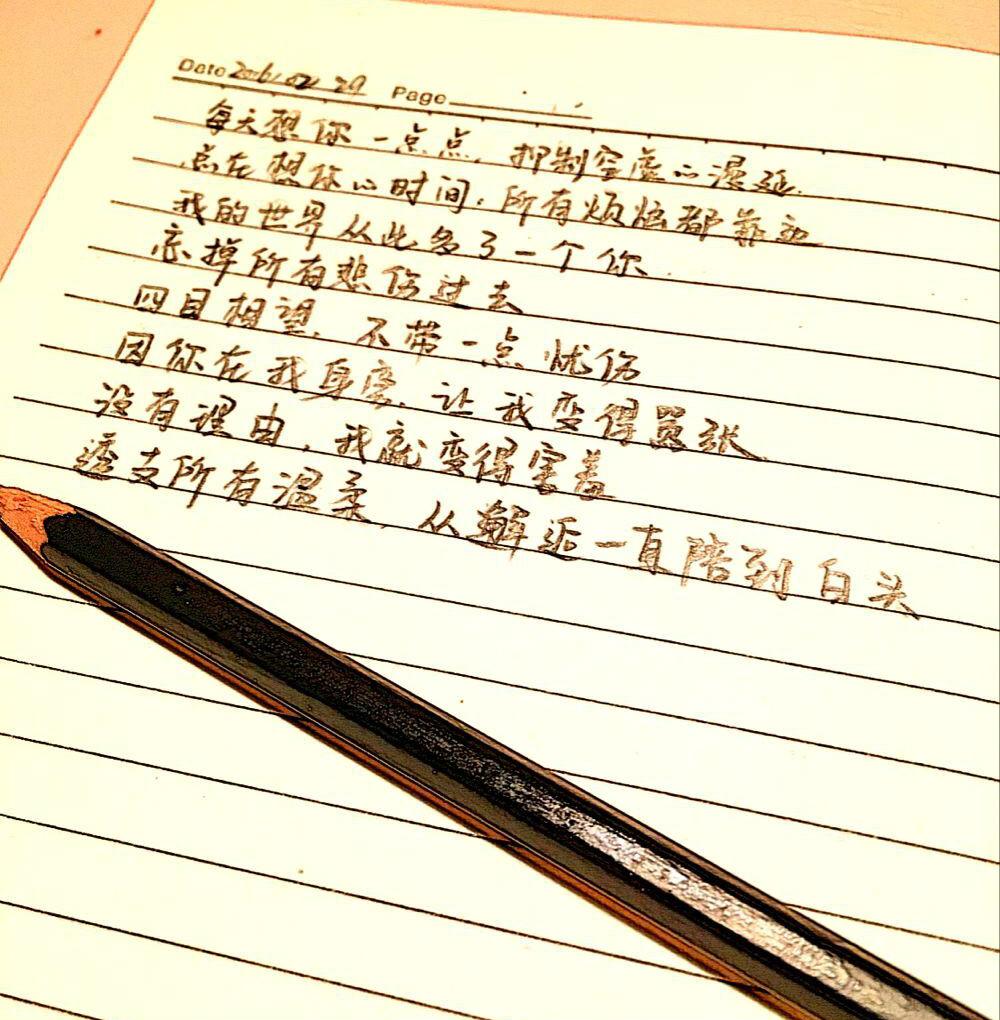 Date 2016/02/29 Page
每天想你一点点，抑制空虚心漫延.
点在想你心时间，所有烦恼都靠边
我的世界从此多了一个你.
忘掉所有悲伤过去
四目相望，不带一点忧伤
因你在我身旁，让我变得嚣张
没有理由，我就变得害羞
透支所有温柔，从邂逅一直陪到白头